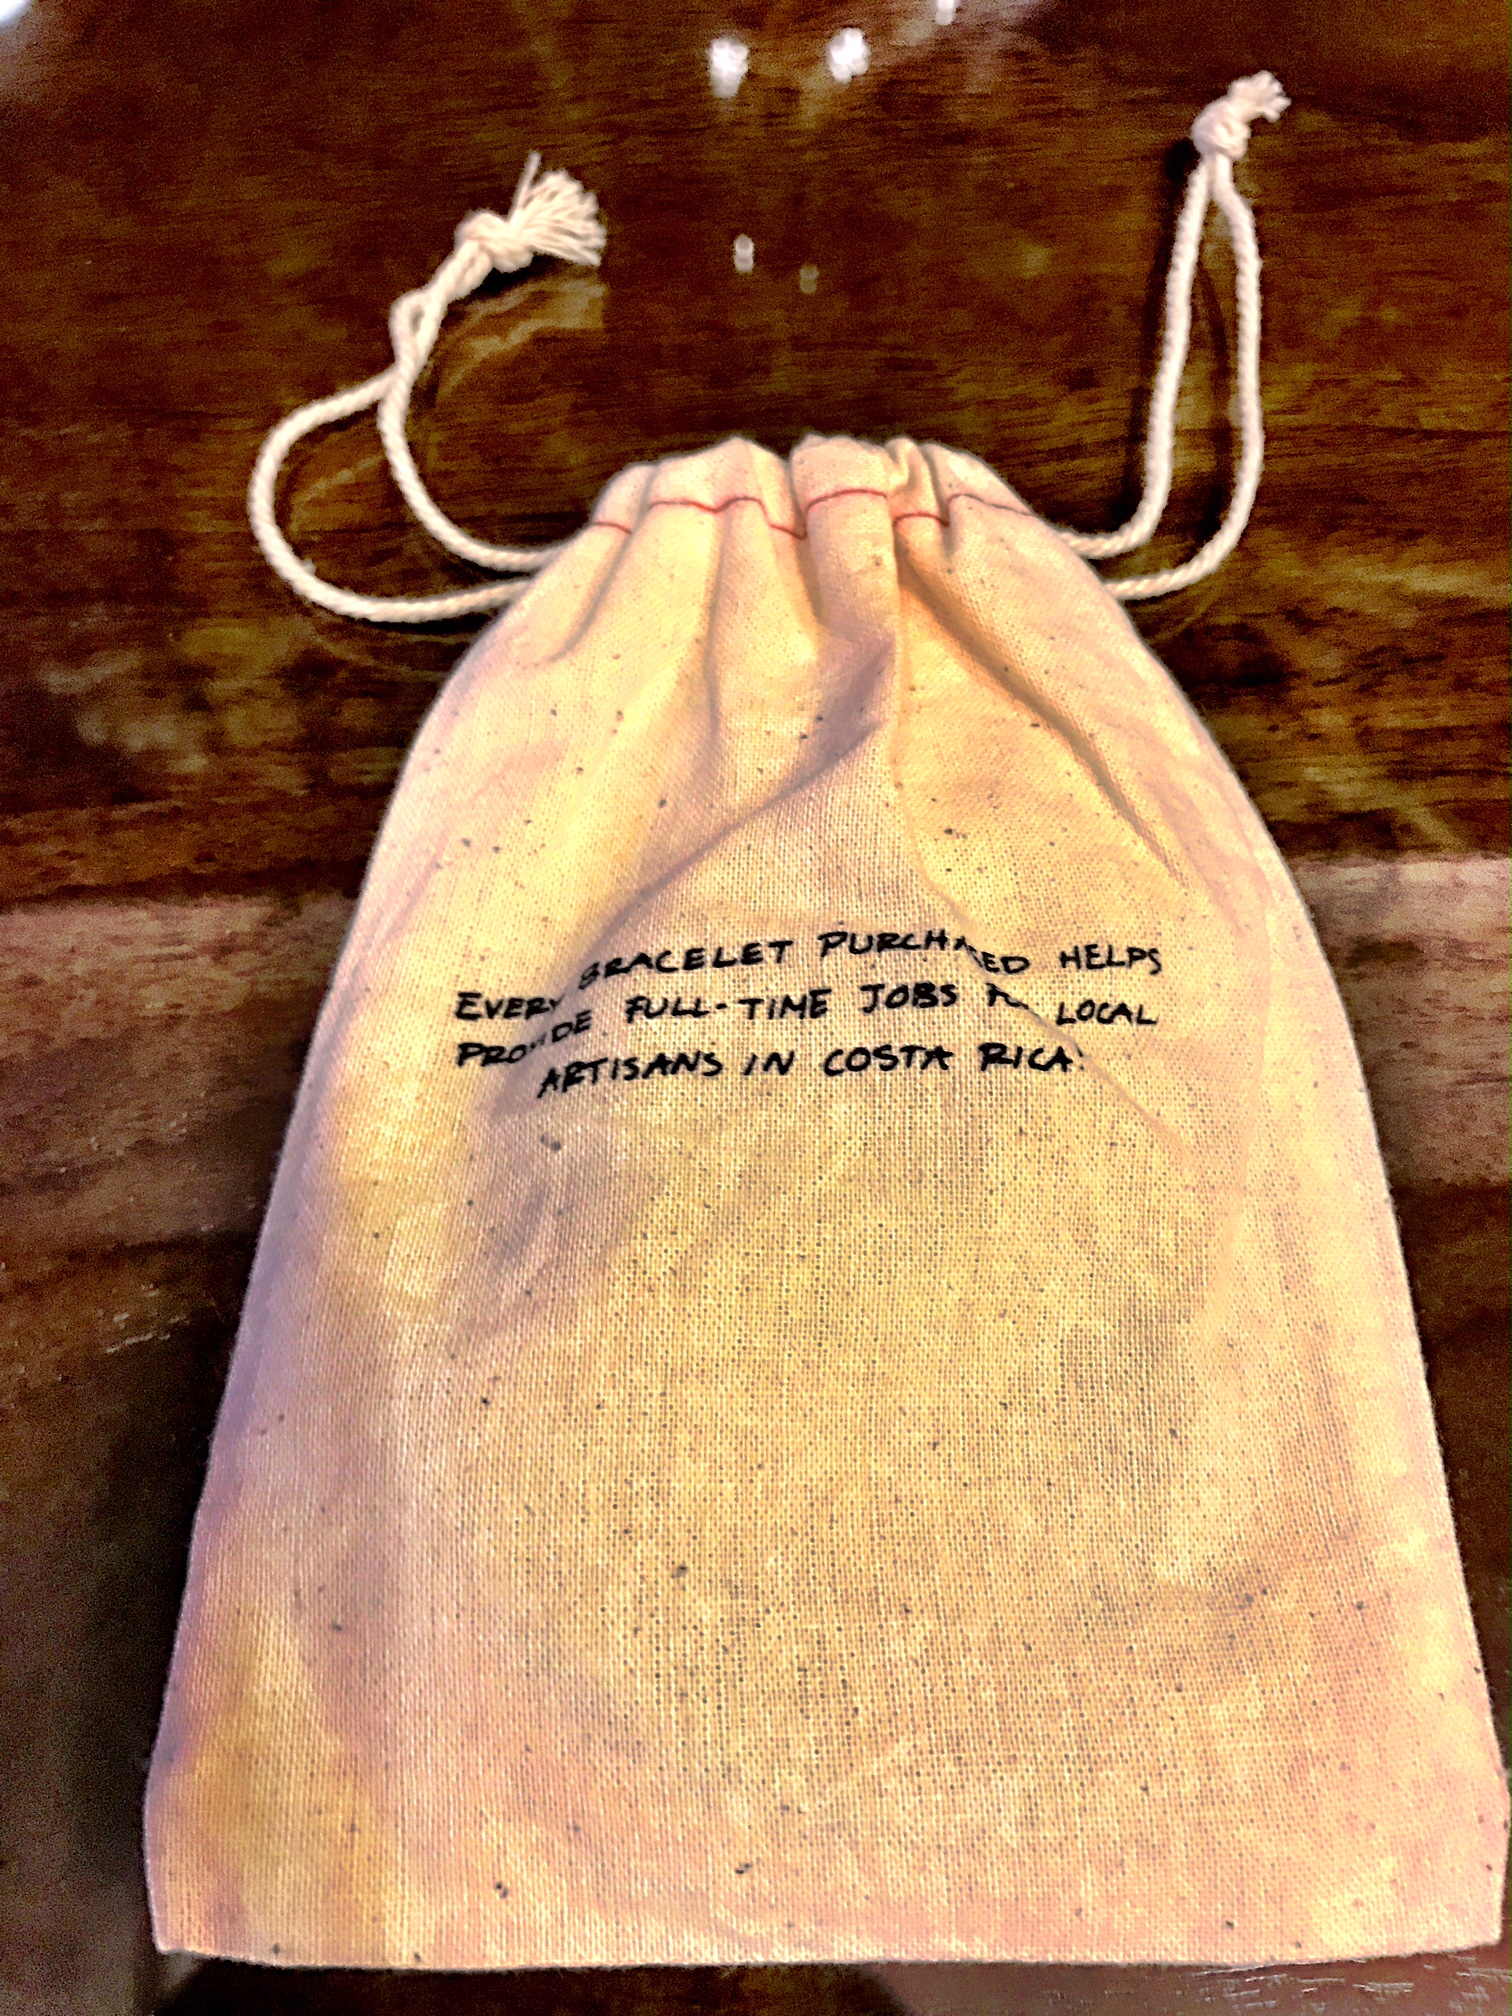 EVERY BRACELET PURCHASED HELPS
PROVIDE FULL-TIME JOBS LOCAL
ARTISANS IN COSTA RICA!